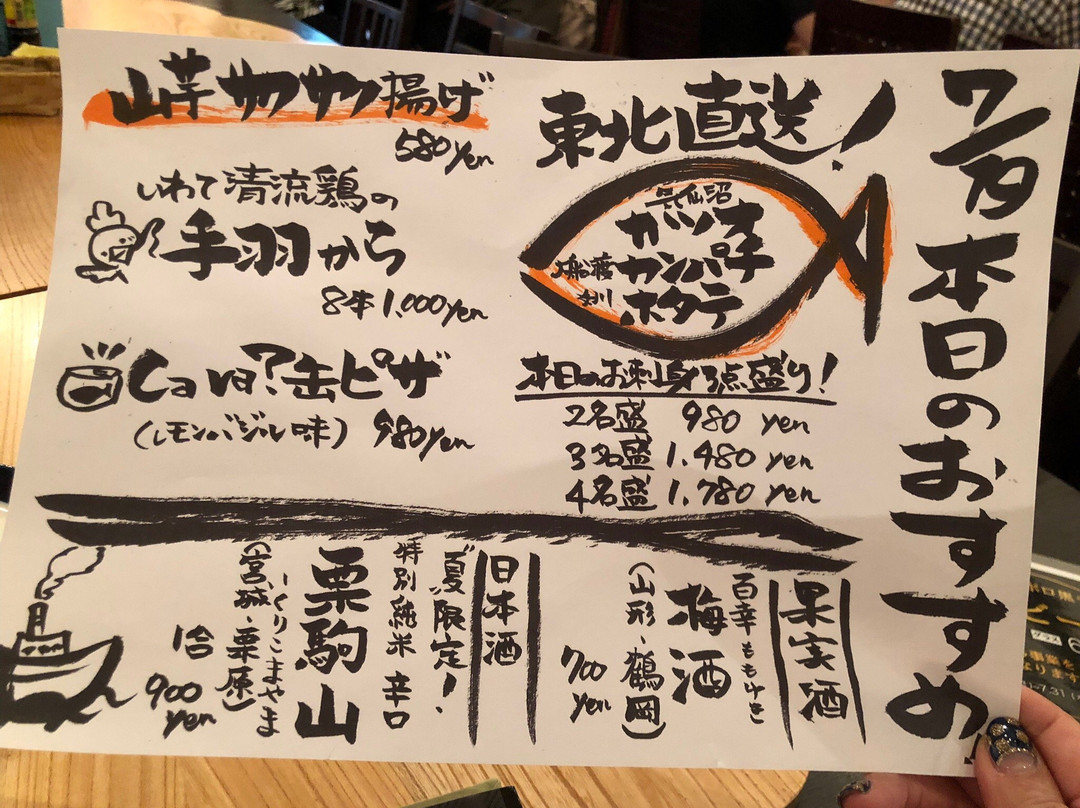 7/9 本日のおすすめ
東北直送!
気仙沼
ガツオ
大船渡
カンパチ
女川
ホタテ
本日のお刺身3点盛り!
2名盛 980 yen
3名盛 1,480 yen
4名盛 1,780 yen
山芋サクサク揚げ
580yen
いわて清流鶏の
手羽から
8本1,000yen
Cava?缶ピザ
(レモンバジル味) 980yen
果実酒
百幸ももゆき
梅酒
(山形・鶴岡)
700
yen
日本酒
夏限定!
特別純米 辛口
栗駒山
くりこまやま
(宮城・栗原)
1合
900
yen
グラス